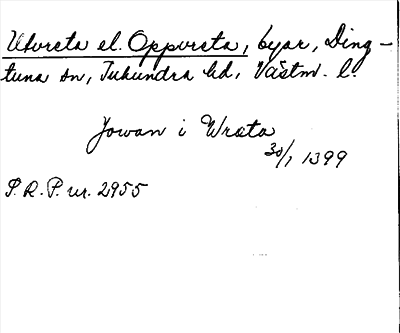 Utvreta el. Oppvreta, byar, Ding-
tuna sn, Tuhundra hd, Västm. l.
Jowan i Wræta
30/1 1399
S.R.P. nr. 2955